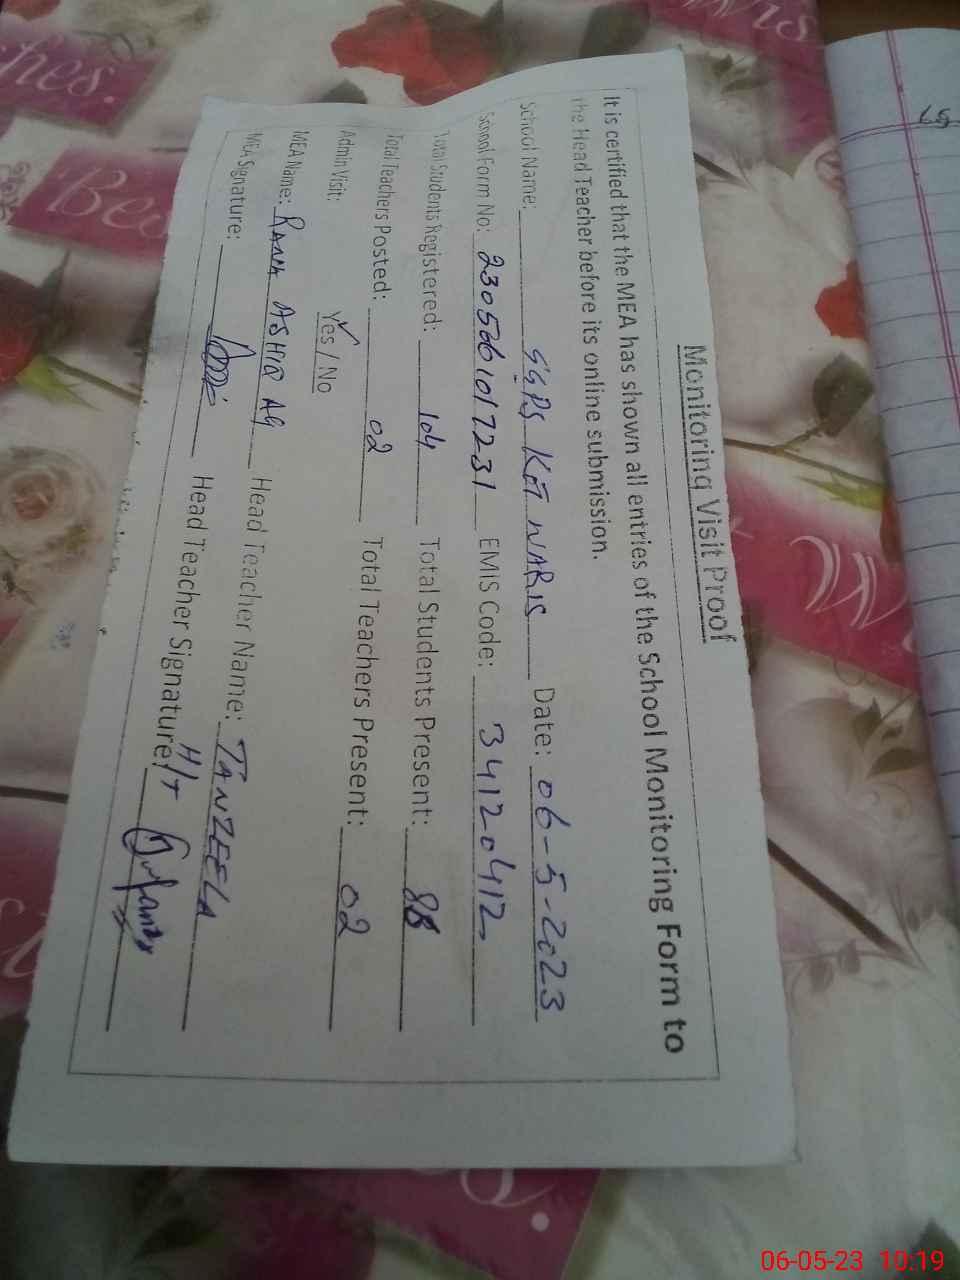 Monitoring Visit Proof
It is certified that the MEA has shown all entries of the School Monitoring Form to
the Head Teacher before its online submission.
School Name: GGPS KOT WARIS Date: 06-5-2023
School Form No: EMIS Code: 34120412
Total Students Registered: 104 Total Students Present: 88
Total Teachers Posted: 02 Total Teachers Present: 02
Admin Visit: Yes / No
MEA Name: RANA ASHIQ Ali Head Teacher Name: TANZEELA
MEA Signature: Head Teacher Signature: H/T
06-05-23 10:19